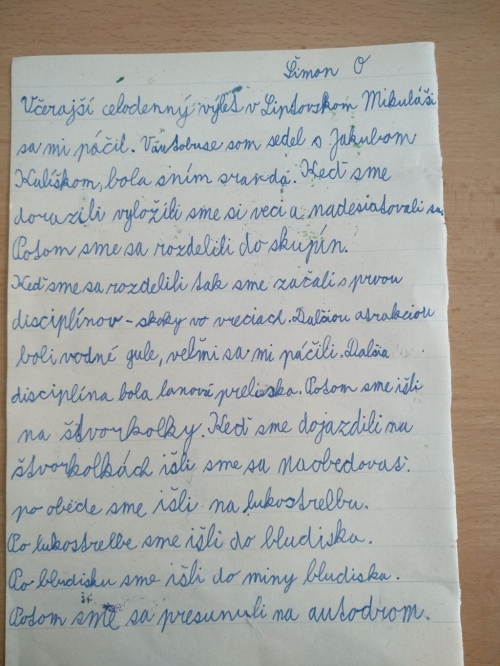 Šimon O
Včerajší celodenný výlet v Liptovskom Mikuláši
sa mi páčil. V autobuse som sedel s Jakubom
Kuliškom, bola sním sranda. Keď sme
dorazili vyložili sme si veci a nadesiatovali sa.
Potom sme sa rozdelili do skupín.
Keď sme sa rozdelili tak sme začali s prvou
disciplínov - skoky vo vreciach. Dalšiou atrakciou
boli vodné gule, veľmi sa mi páčili. Dalšia
disciplína bola lanová preliezka. Potom sme išli
na štvorkolky. Keď sme dojazdili na
štvorkolkách išli sme sa naobedovať.
po obede sme išli na lukostrelbu.
Po lukostrelbe sme išli do bludiska.
Po bludisku sme išli do miny bludiska.
Potom sme sa presunuli na autodrom.